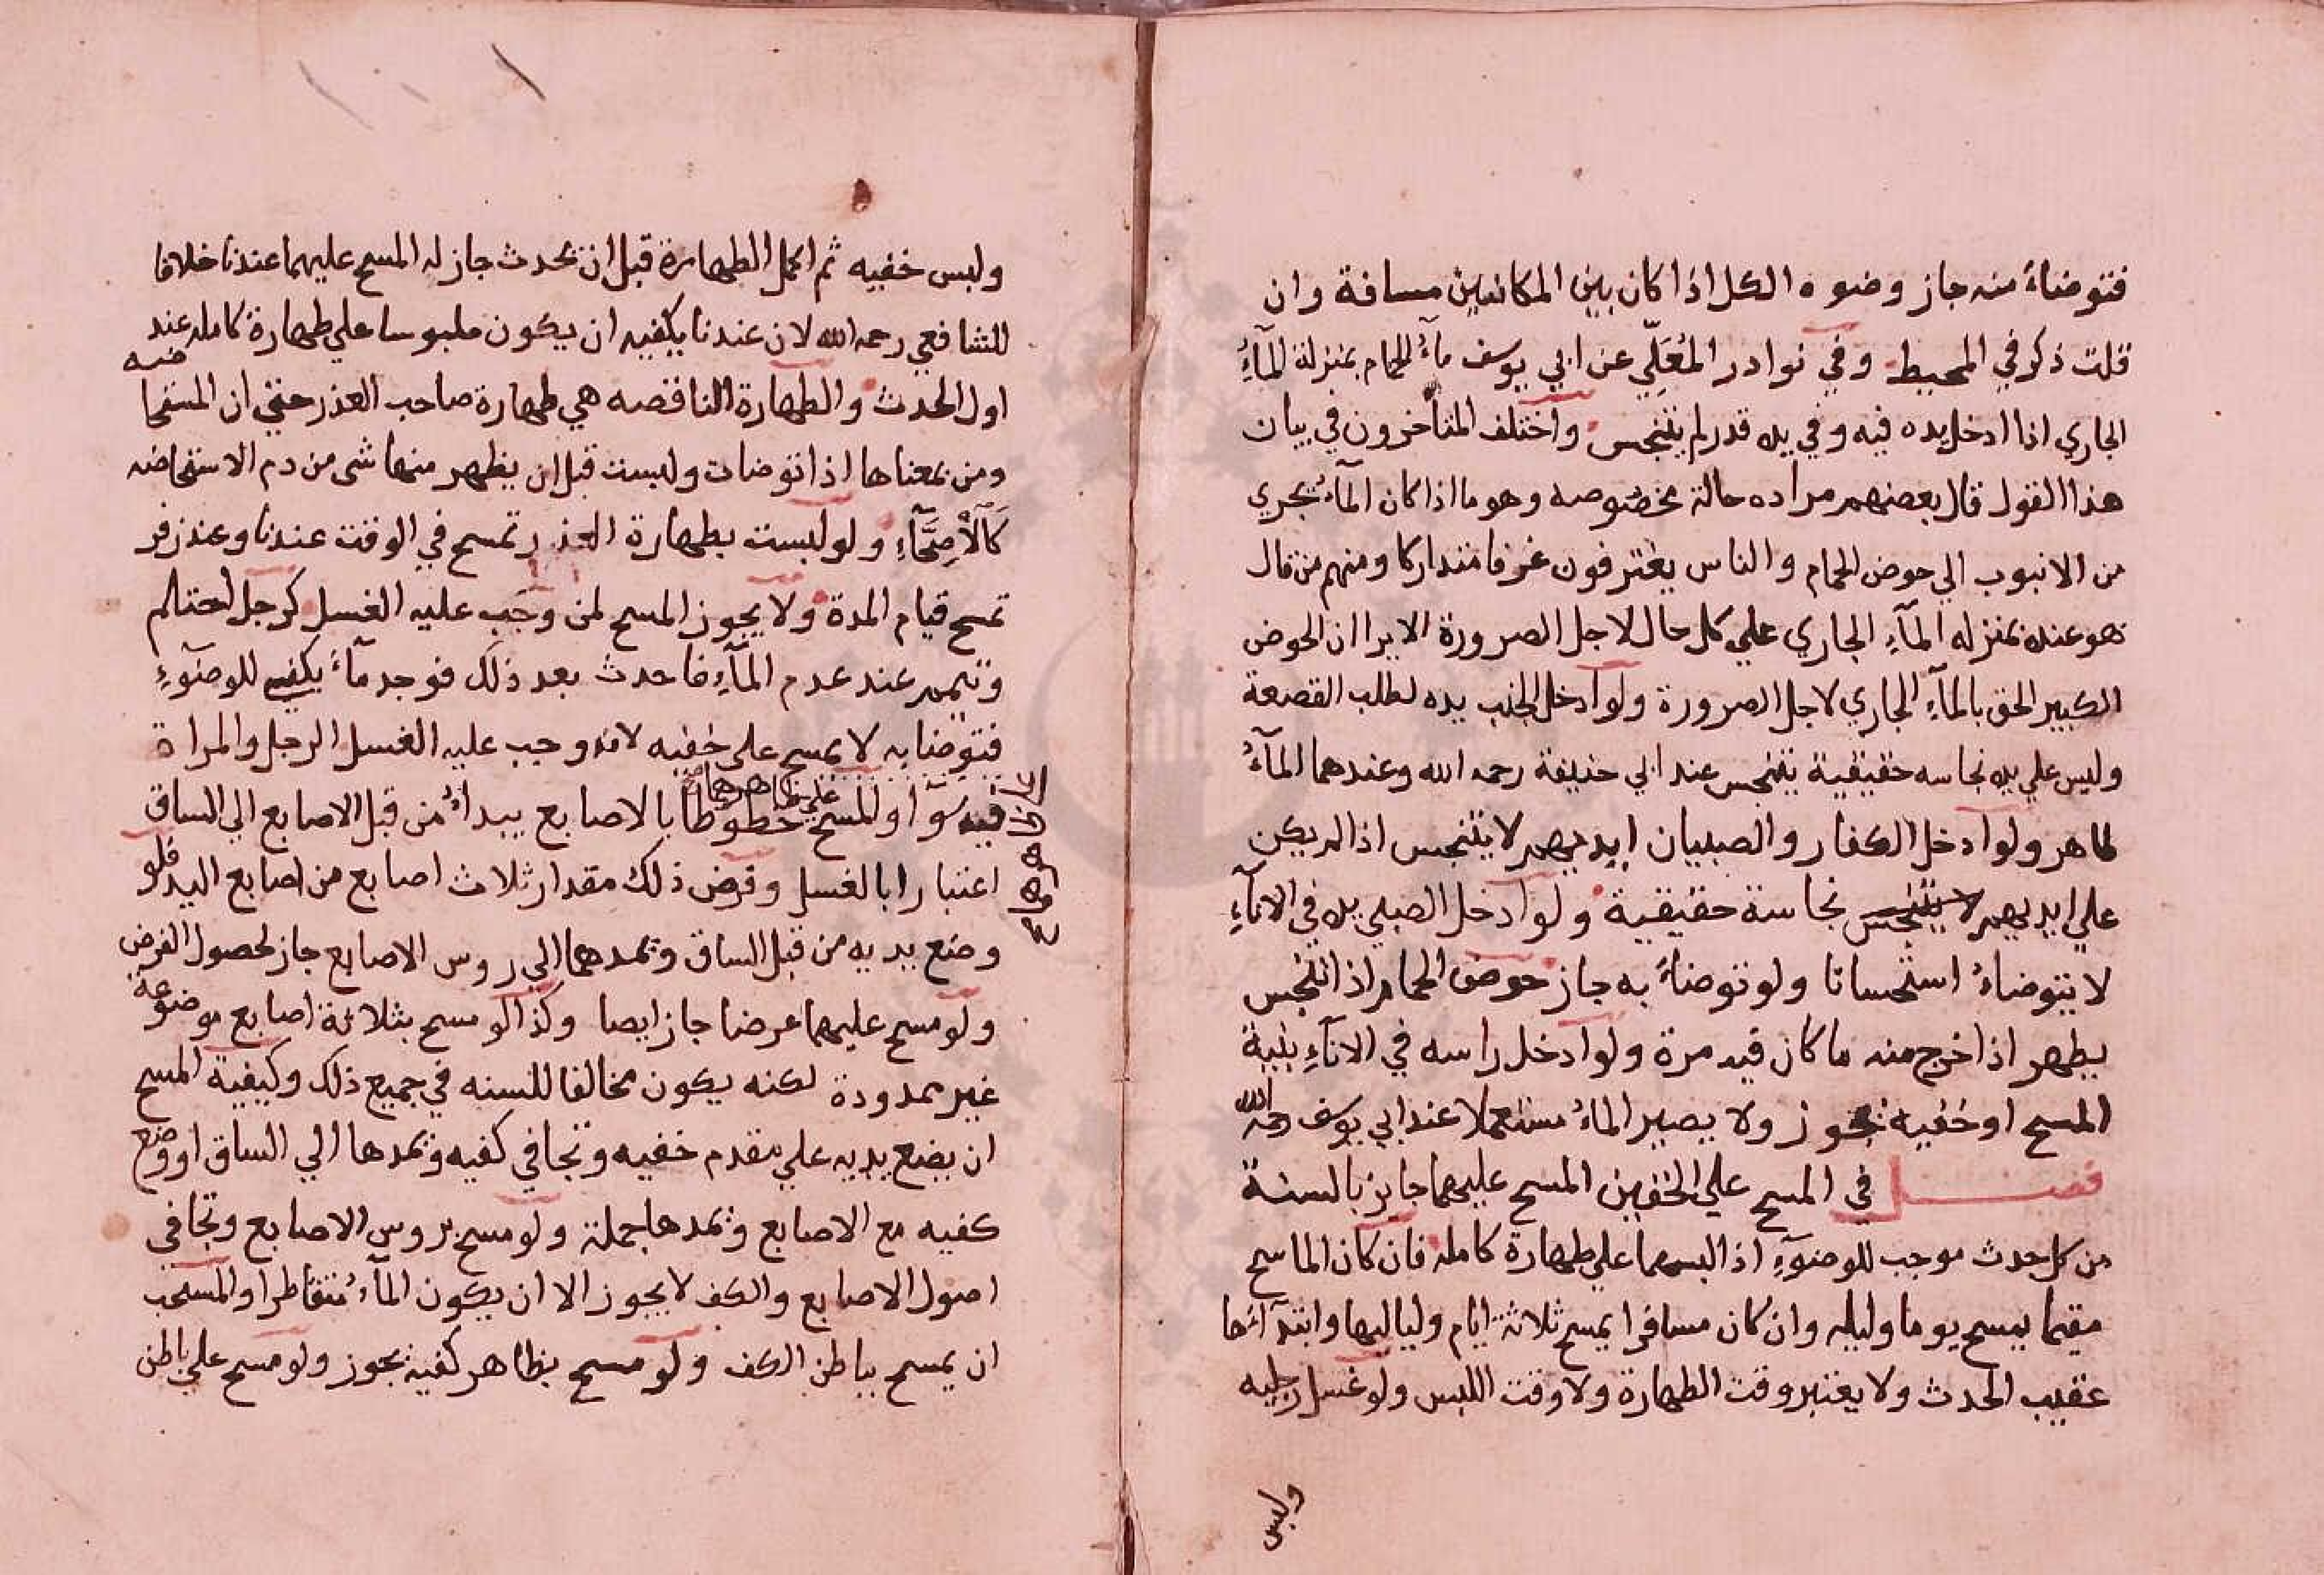 فتوضاءَ منه جاز وضوء الكل اذا كان بين المكانيين مسافة وان
قلت ذكر في المحيط وفي نوادر المُعَلّي عن ابي يوسف مآءُ الحمام بمنزلة المآءِ
الجاري اذا ادخل يده فيه وفي يده قدر لم يتنجس واختلف المتأخرون في بيان
هذا القول قال بعضهم مراده حالة مخصوصه وهو ما اذا كان المآء يجري
من الانبوب الي حوض الحمام والناس يغترفون غرفا متداركا ومنهم من قال
هو عنده بمنزله المآءِ الجاري علي كل حال لاجل الضرورة الا يرا ان الحوض
الكبير الحق بالمآءِ الجاري لاجل الضرورة ولو ادخل الجنب يده لطلب القصعة
وليس علي يده نجاسه حقيقية يتنجس عند ابي حنيفة رحمه الله وعندهما المآءُ
طاهر ولو ادخل الكفار والصبيان ايديهم لا يتنجس اذا لم يكن
علي ايديهم لا يتنجس نجاسة حقيقية ولو ادخل الصبي يده في الانآءِ
لا يتوضاءُ استحسانا ولو توضاءَ به جاز حوض الحمام اذا تنجس
يطهر اذا خرج منه ما كان فيه مرة ولو ادخل راسه في الانآءِ بنية
المسح او خفيه يجوز ولا يصير الماءُ مستعملا عند ابي يوسف رحمه الله
فصل في المسح علي الخفين المسح عليهما جايز بالسنة
من كل حدث موجب للوضوءِ اذا لبسهما علي طهارة كامله فان كان الماسح
مقيما يمسح يوما وليله وان كان مسافرا يمسح ثلاثة ايام ولياليها وابتدآئها
عقيب الحدث ولا يعتبر وقت الطهارة ولا وقت اللبس ولو غسل رجليه
ولبس
ولبس خفيه ثم اكمل الطهارة قبل ان يحدث جاز له المسح عليهما عندنا خلافا
للشافعي رحمه الله لان عندنا يكفيه ان يكون ملبوسا علي طهارة كامله عند
اول الحدث والطهارة الناقصه هي طهارة صاحب العذر حتي ان المستحاضه
ومن بمعناها اذا توضات ولبست قبل ان يظهر منها شي من دم الاستحاضه
كَالْاَصِحَّآءِ ولو لبست بطهارة العذر تمسح في الوقت عندنا وعند زفر
تمسح قيام المدة ولا يجوز المسح لمن وجب عليه الغسل كرجل احتلم
وتيمم عند عدم المآءِ فاحدث بعد ذلك فوجد مآءً يكفي للوضوءِ
فتوضا به لا يمسح علي خفيه لانه وجب عليه الغسل الرجل والمراة
فيه سوآ والمسح علي ظاهرهما خطوطا بالاصابع يبداءُ من قبل الاصابع الي الساق
اعتبارا بالغسل وفرض ذلك مقدار ثلاث اصابع من اصابع اليد فلو
وضع يديه من قبل الساق ويمدهما الي روس الاصابع جاز لحصول الفرض
ولو مسح عليهما عرضا جاز ايضا وكذا لو مسح بثلاثة اصابع موضوعة
غير ممدودة لكنه يكون مخالفا للسنه في جميع ذلك وكيفية المسح
ان يضع يديه علي مقدم خفيه وتجافي كفيه ويمدها الي الساق او وضع
كفيه مع الاصابع ويمدها جملة ولو مسح بروس الاصابع وتجافي
اصول الاصابع والكف لا يجوز الا ان يكون المآءُ متقاطرا والمستحب
ان يمسح بباطن الكف ولو مسح بظاهر كفيه يجوز ولو مسح علي باطن